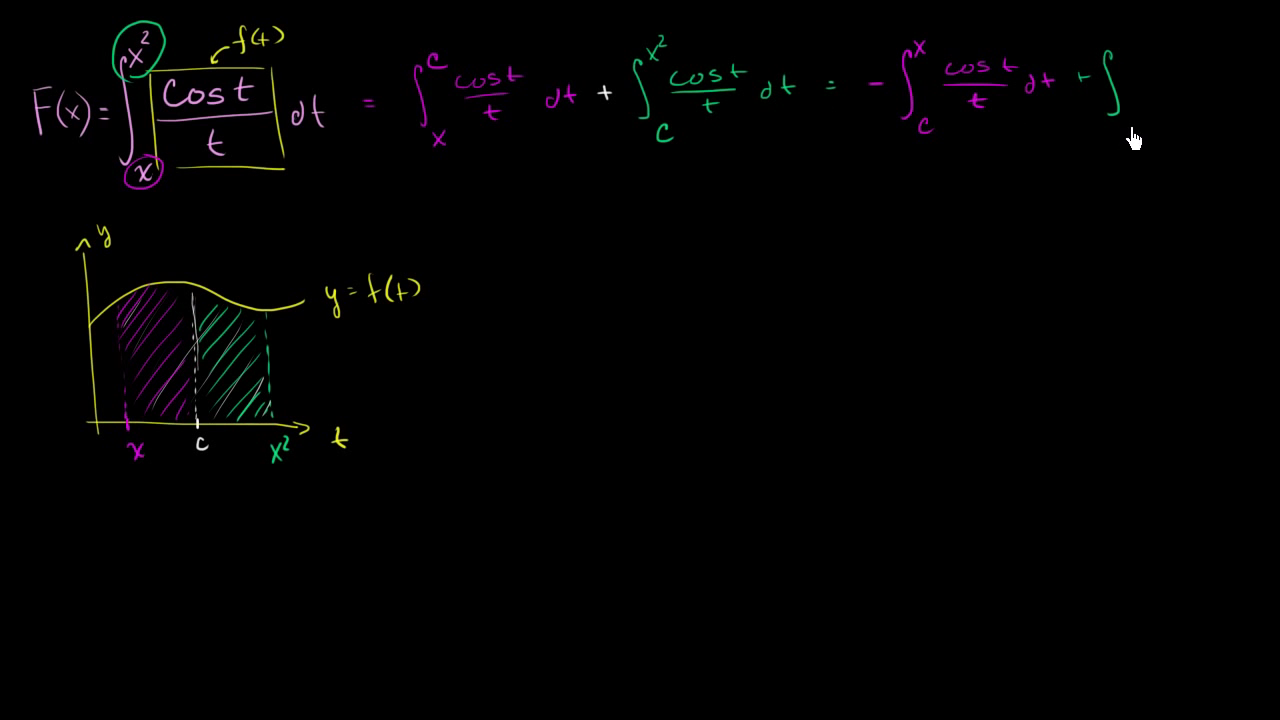 F(x) = ∫ₓ^(x²) cos t / t dt = ∫ₓ^c cos t / t dt + ∫_c^(x²) cos t / t dt = - ∫_c^x cos t / t dt + ∫
f(t)
y
y = f(t)
x c x² t